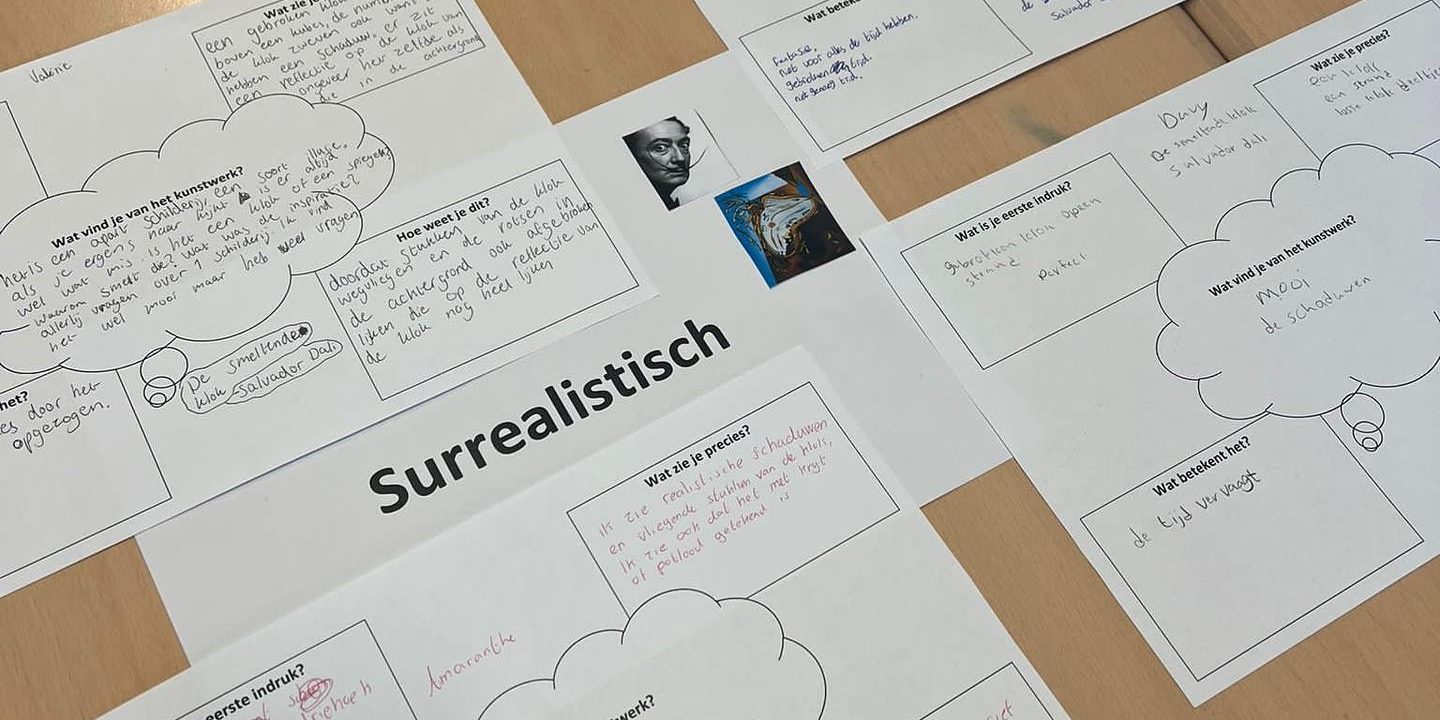 Valerie
Wat zie je
een gebroken klok
boven een kubes, de num
de klok zweven ook want
hebben een schaduw, er zit
een reflectie op de klok van
ongeveer het zelfde als
die in de achtergrond
Wat vind je van het kunstwerk?
het is een apart schilderij, een soort illusie,
als je ergens naar kijkt is er altijd
wel wat mis. is het een klok of een spiegel?
waarom smelt de? wat was de inspiratie?
allerlij vragen over 1 schilderij. ik vind
het wel mooi maar heb weer vragen
Hoe weet je dit?
doordat stukken van de klok
wegvliegen en de rotsen in
de achtergrond ook afgebroken
lijken die op de reflectie van
de klok nog heel lijken
De smeltende
klok -Salvador Dali
het?
es door het
opgezogen.
Wat betek
fantasie.
niet voor alles de tijd hebben.
gebroken tijd.
niet genoeg tijd.
de
Salvador
Surrealistisch
Davy
De smeltende klok
Salvador dali
Wat zie je precies?
een klok
een strand
losse klok deeltjes
Wat is je eerste indruk?
gebrokken klok open
strand
Perfect
Wat vind je van het kunstwerk?
mooi
de schaduwen
Wat betekent het?
de tijd vervaagt
Wat zie je precies?
Ik zie realistische schaduwen
en vliegende stukken van de klok,
Ik zie ook dat het met krijt
of potlood getekend is
Amaranthe
eerste indruk?
driehoek
werk?